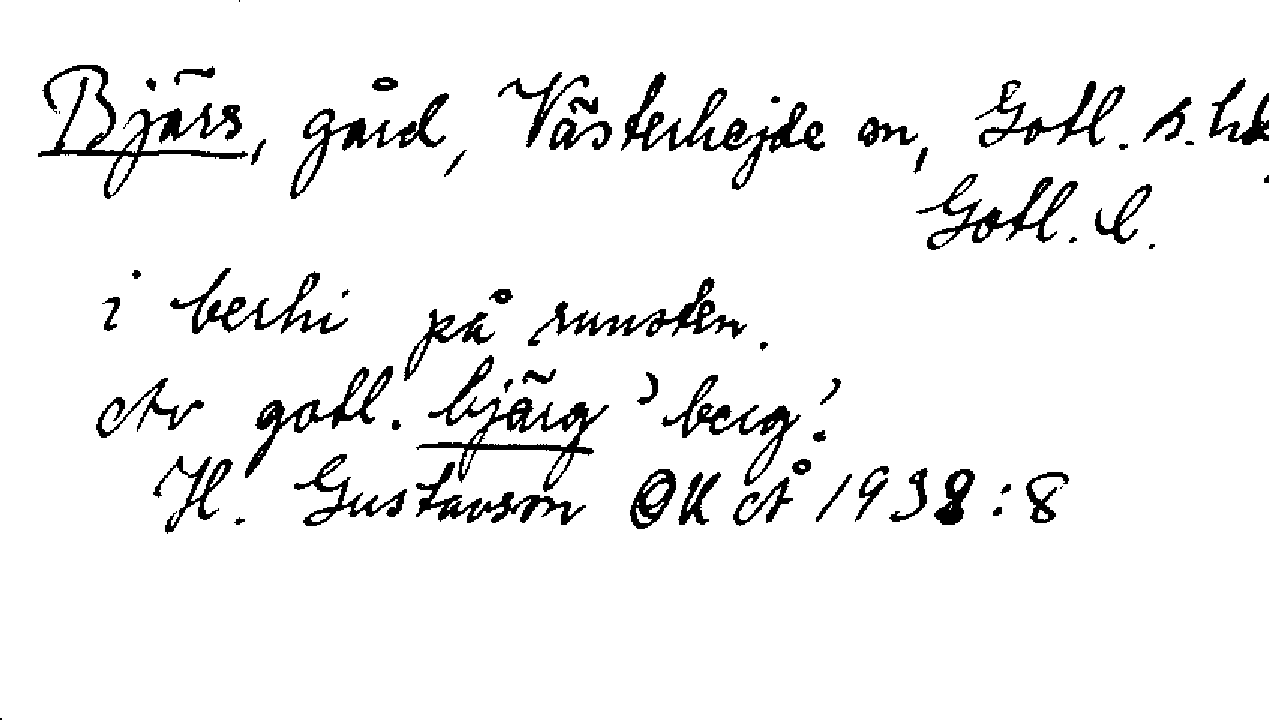 Bjärs, gård, Västerhejde sn, Gotl. s. hd,
Gotl. l.
i berhi på runsten.
Av gotl. bjärg 'berg'.
H. Gustavson OK Å 1938:8